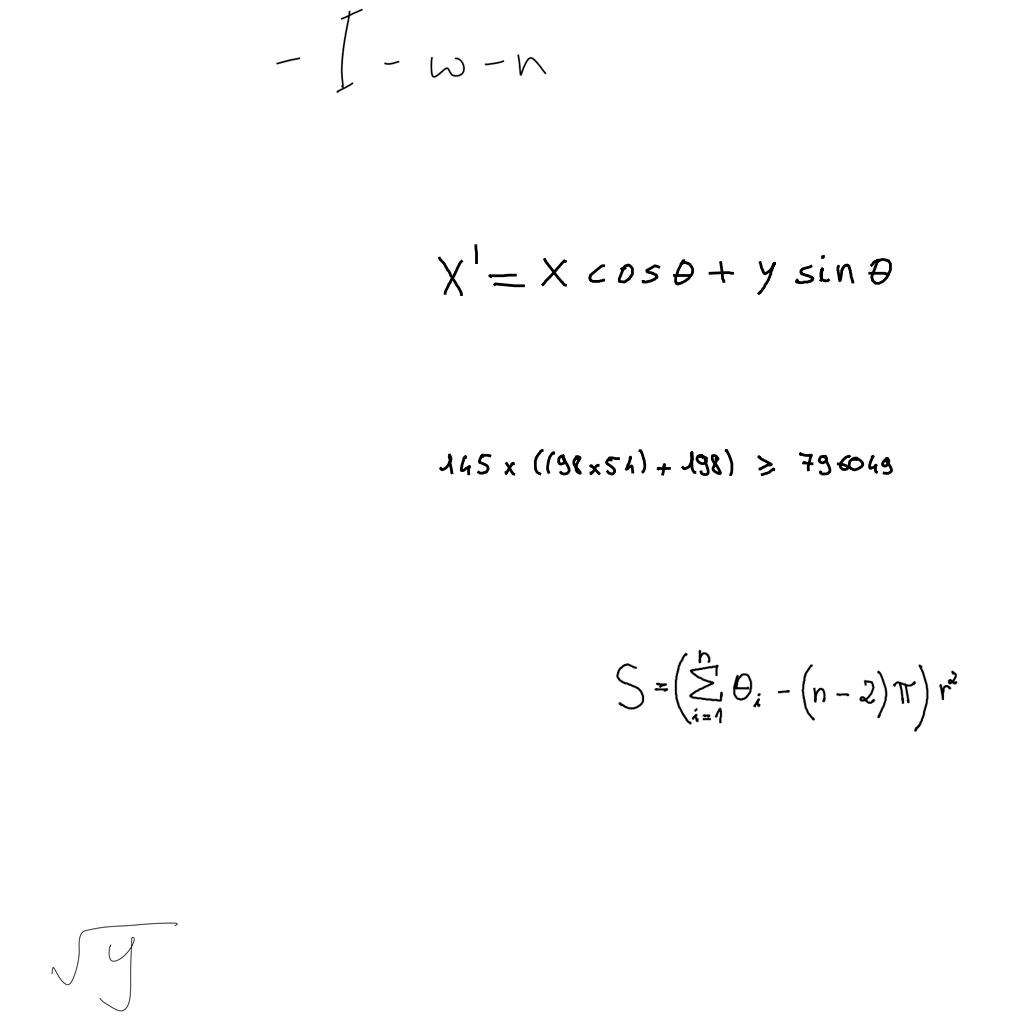 - I - w - n
x' = x cos θ + y sin θ
145 × ((98×54) + 198) ≥ 796049
S = (∑_{i=1}^{n} θ_i - (n - 2)π) r²
√y